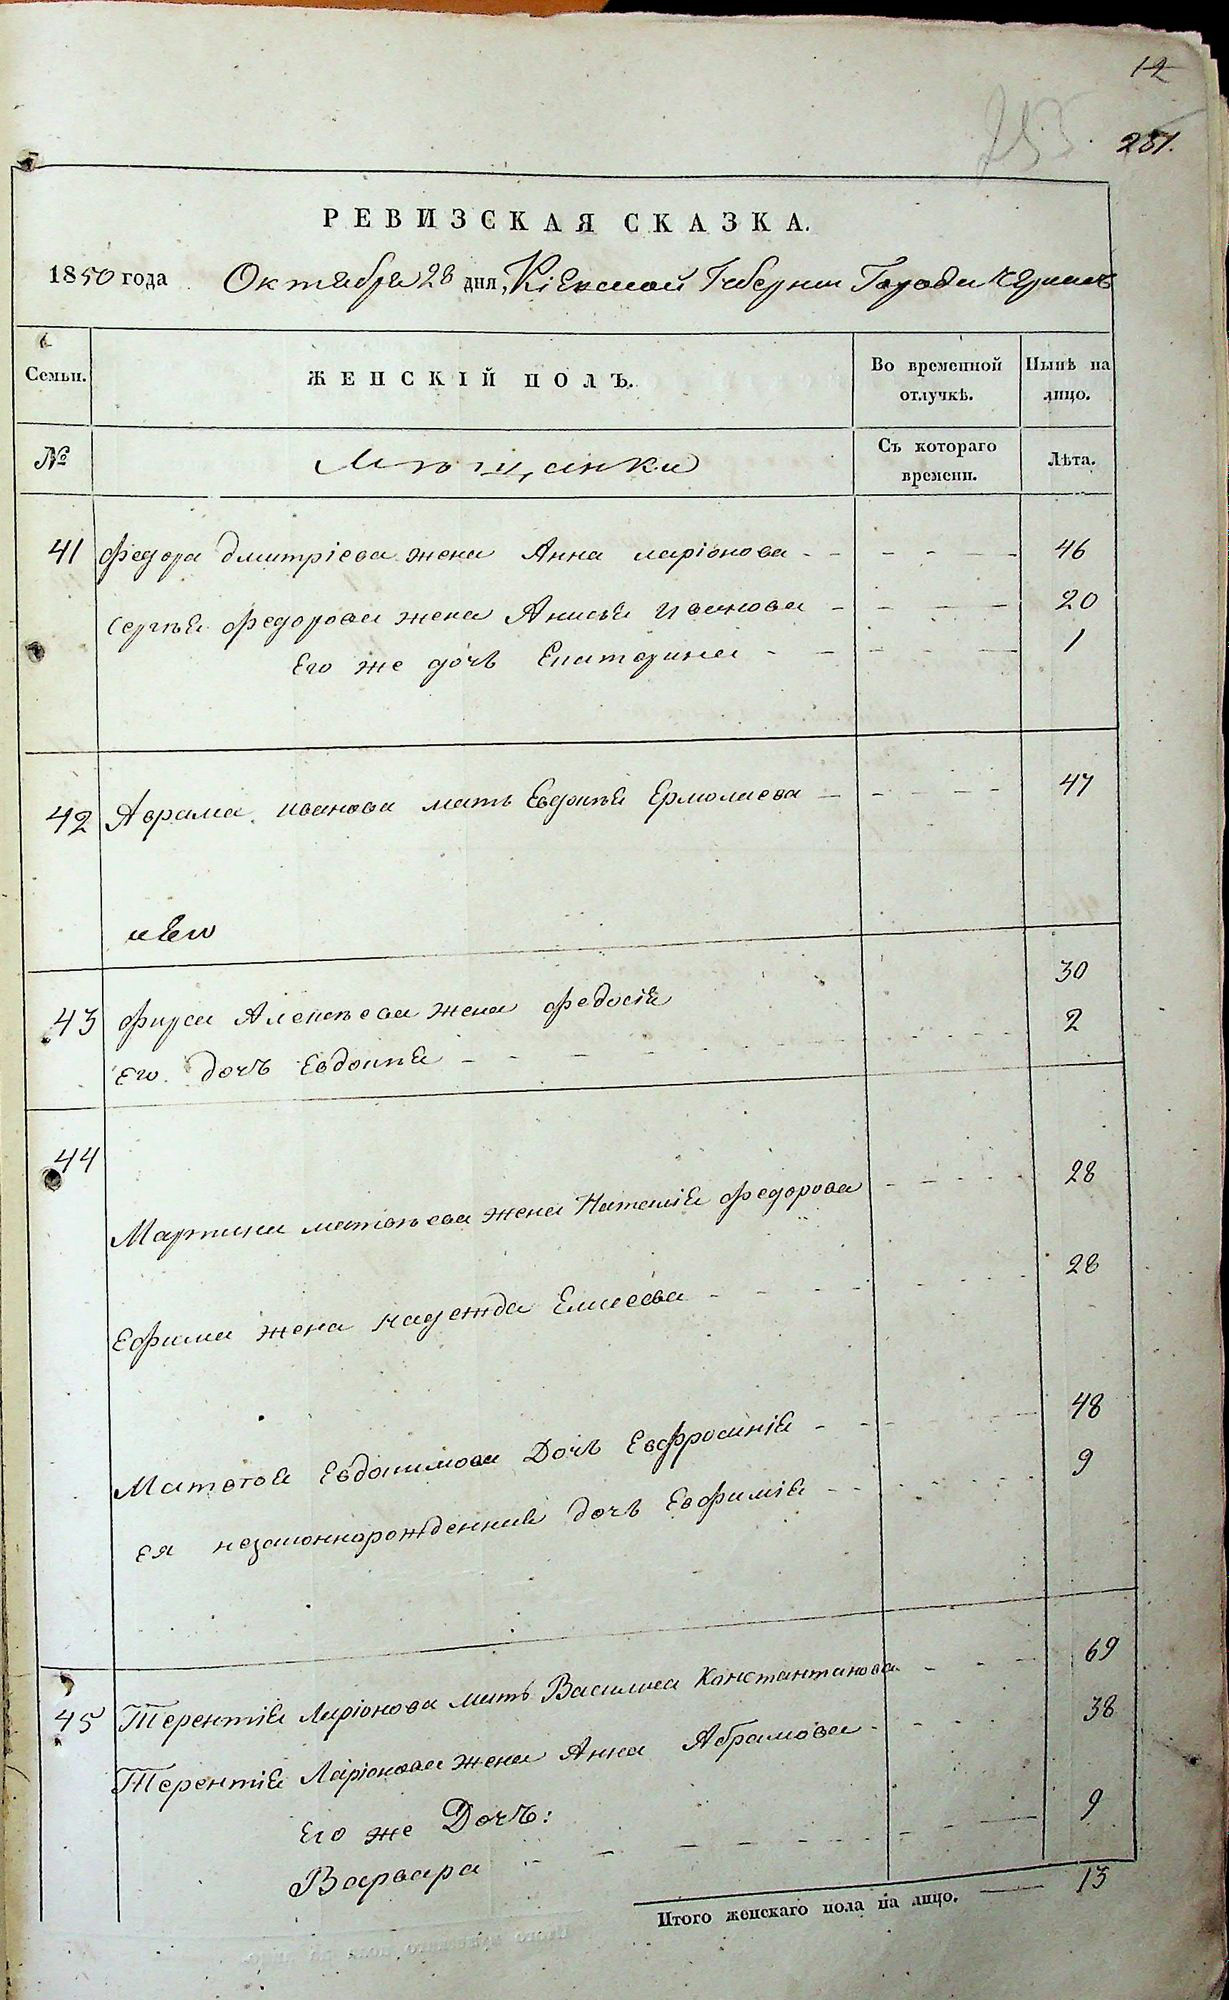 12
253.
251.
РЕВИЗСКАЯ СКАЗКА.
1850 года Октября 28 дня, Кіевской Губерніи Города
Семьи.
ЖЕНСКІЙ ПОЛЪ.
Во временной отлучкѣ.
Нынѣ на лицо.
№
Мѣщанки
Съ котораго времени.
Лѣта.
41 Федора Дмитріева жена Анна Ларіонова - - - - - 46
Сергѣя Федорова жена Анисья Иванова - - - - 20
Его же дочь Екатерина - - - - - 1
42 Аврама Иванова мать Евдокія Ермолаева - - - - - 47
и Его
43 Фирса Алексѣева жена Федосія 30
Его дочь Евдокія - - - - - 2
44
Мартина Матвѣева жена Наталія Федорова - - - - 28
Ефима жена Надежда Елисеева - - - - 28
Матвѣя Евдокимова Дочь Евфросинія - - - - 48
ея незаконнорожденная дочь Евфимія - - - - 9
45 Терентія Ларіонова мать Василиса Константинова - - - 69
Терентія Ларіонова жена Анна Абрамова - - - - 38
Его же Дочь:
Варвара - - - - - 9
Итого женскаго пола на лицо. — 13